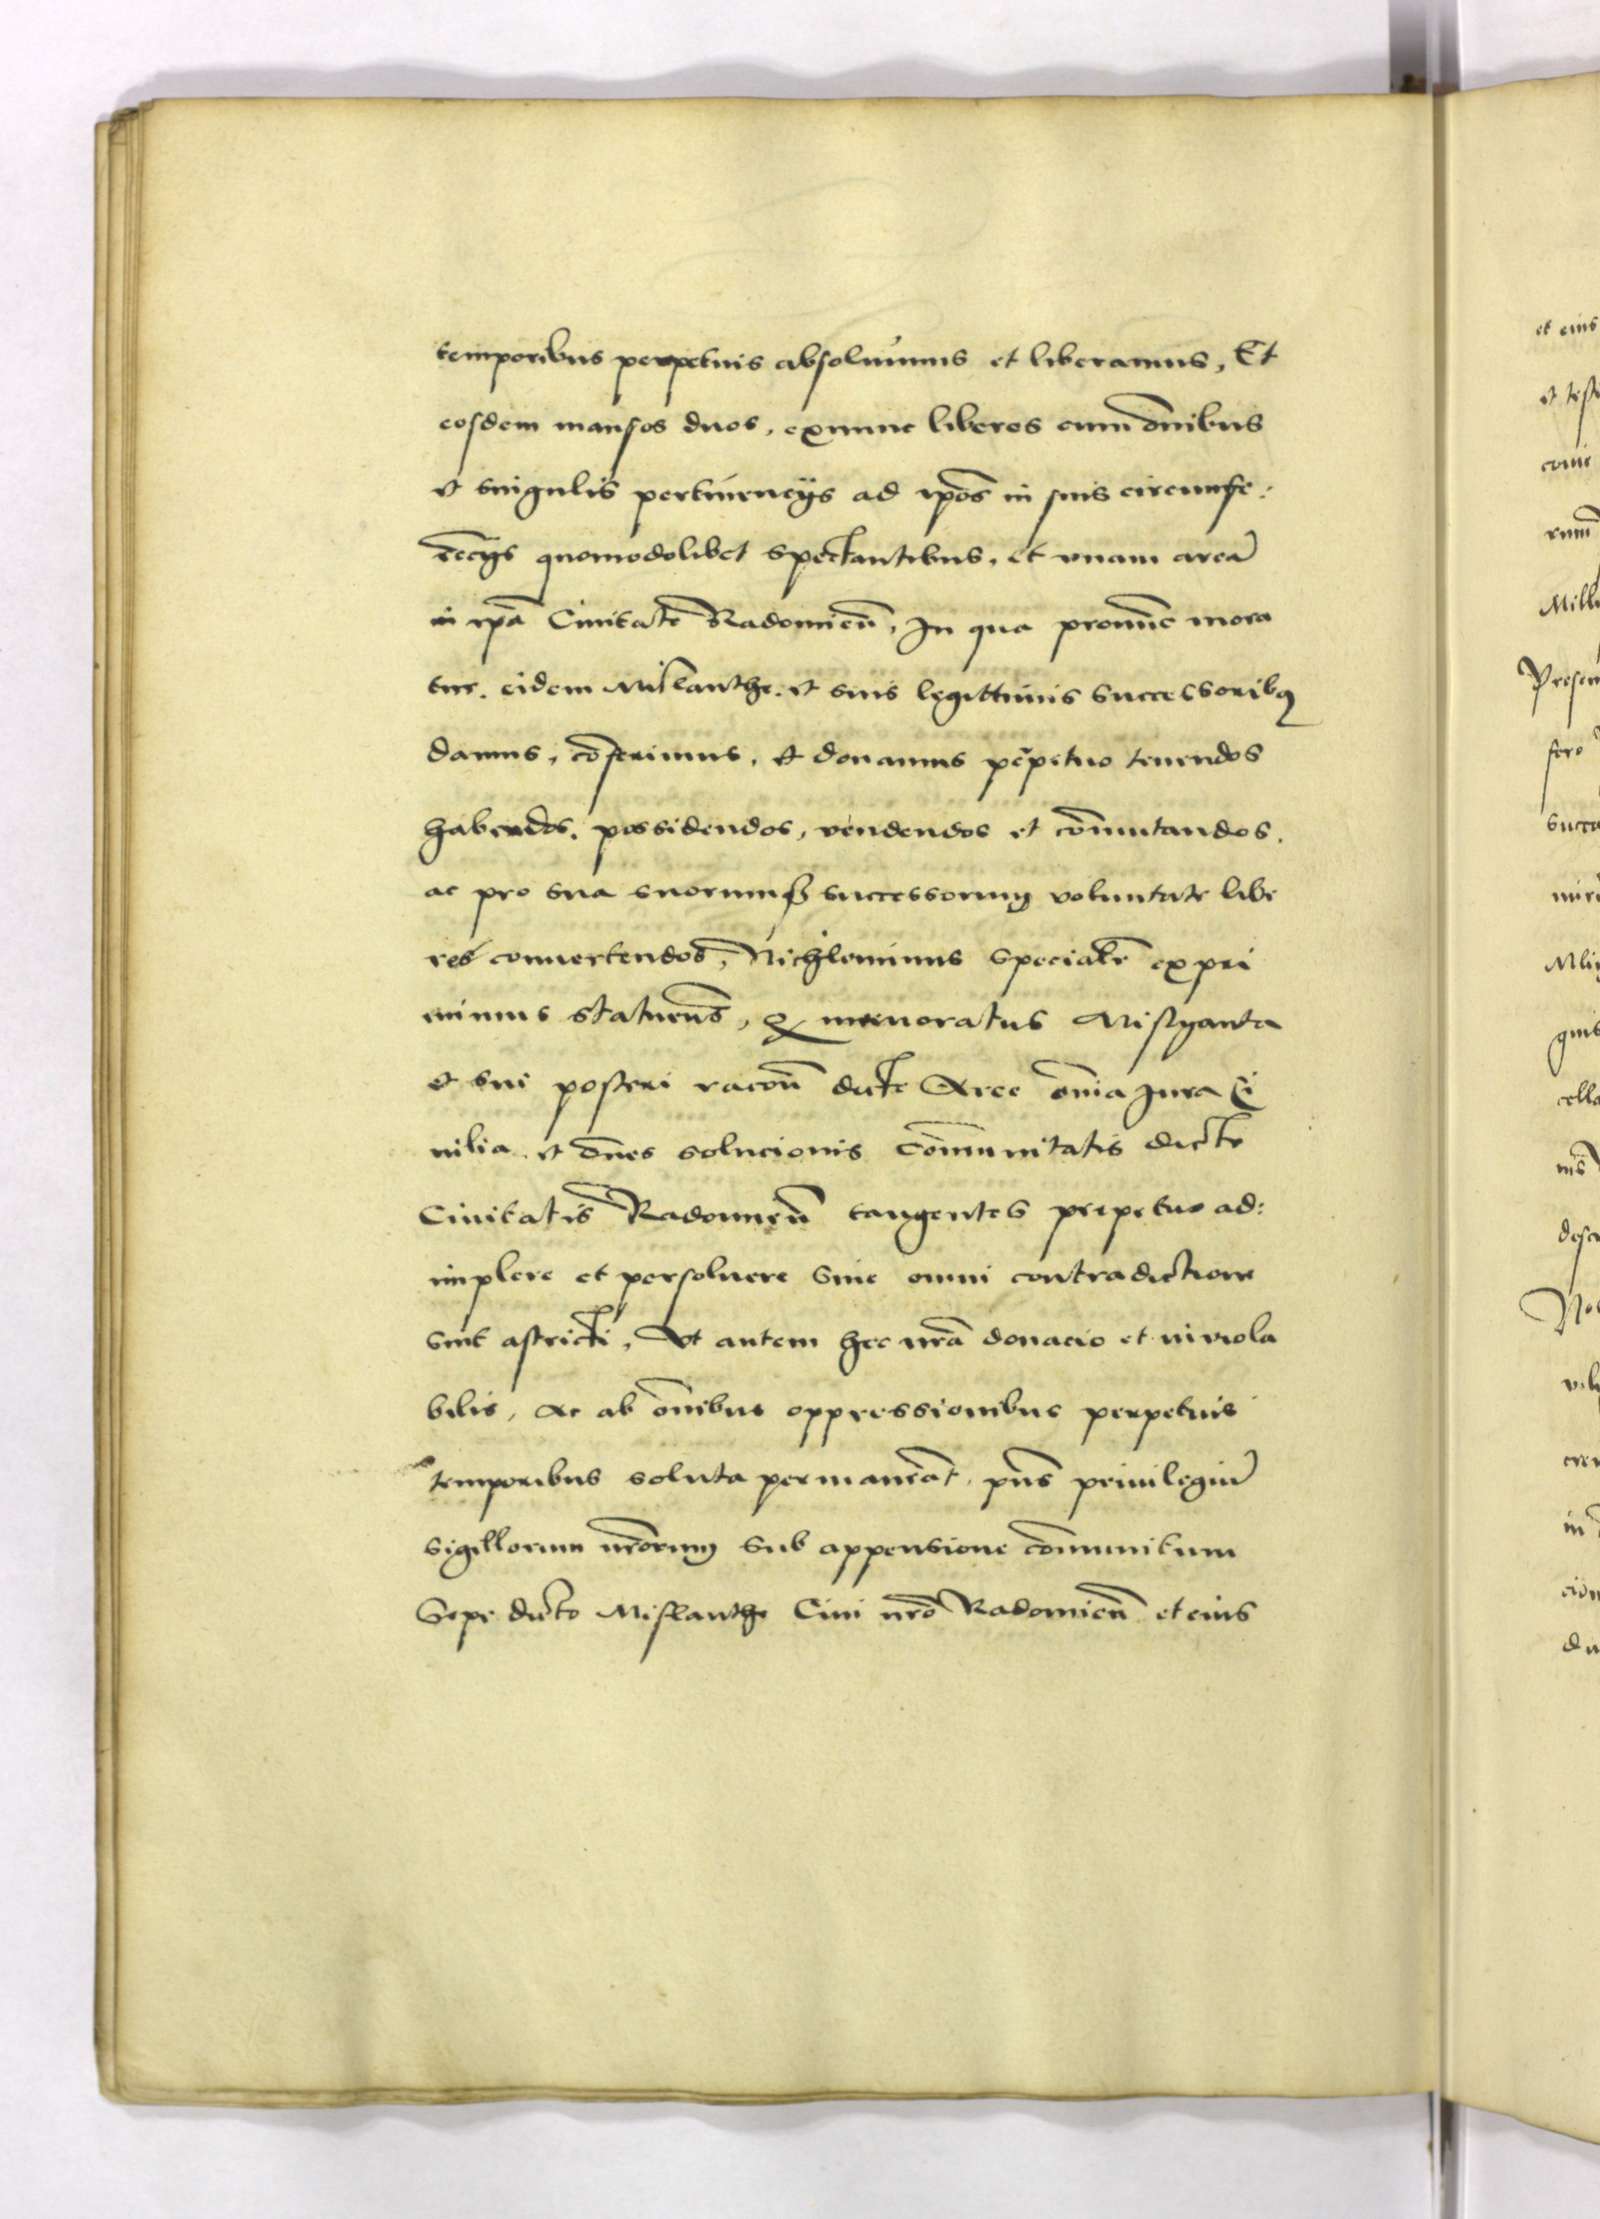 temporibus perpetuis absoluimus et liberamus, Et
eosdem mansos duos, exnunc liberos cum o͞mnibus
et singulis pertinencijs ad ip͞os in suis circumfe:
re͞cijs quomodolibet spectantibus, et vnam area͞
in ip͞a Ciuitate Radomien͞, In qua pronu͞c mora
tur. eidem Mislanthe. et suis legittimis successoribꝫ
damus, co͞ferimus, et donamus pe͞petuo tenendos
habendos, possidendos, vendendos et co͞mutandos,
ac pro sua suorumqꝫ successorum voluntate libe
res conuertendos, Nichilominus specialr͞ expri
mimus statuen͞s, ꝙ memoratus Mislyanta
et sui posteri racon͞ dicte Aree o͞mnia Jura Ci
uilia. et o͞mnes solucionis co͞munitatis dicte
Ciuitatis Radomien͞ tangentes perpetuo ad:
implere et persoluere sine omni contradictione
sint astricti, Vt autem hec nr͞a donacio et inuiola
bilis, Ac ab o͞mnibus oppressionibus perpetuis
temporibus soluta permanea͞t, pn͞s priuilegiu͞
sigillorum nr͞orum sub appensione co͞munitum
Sepe dicto Mislanthe Ciui nr͞o Radomien͞ et eius
et eius